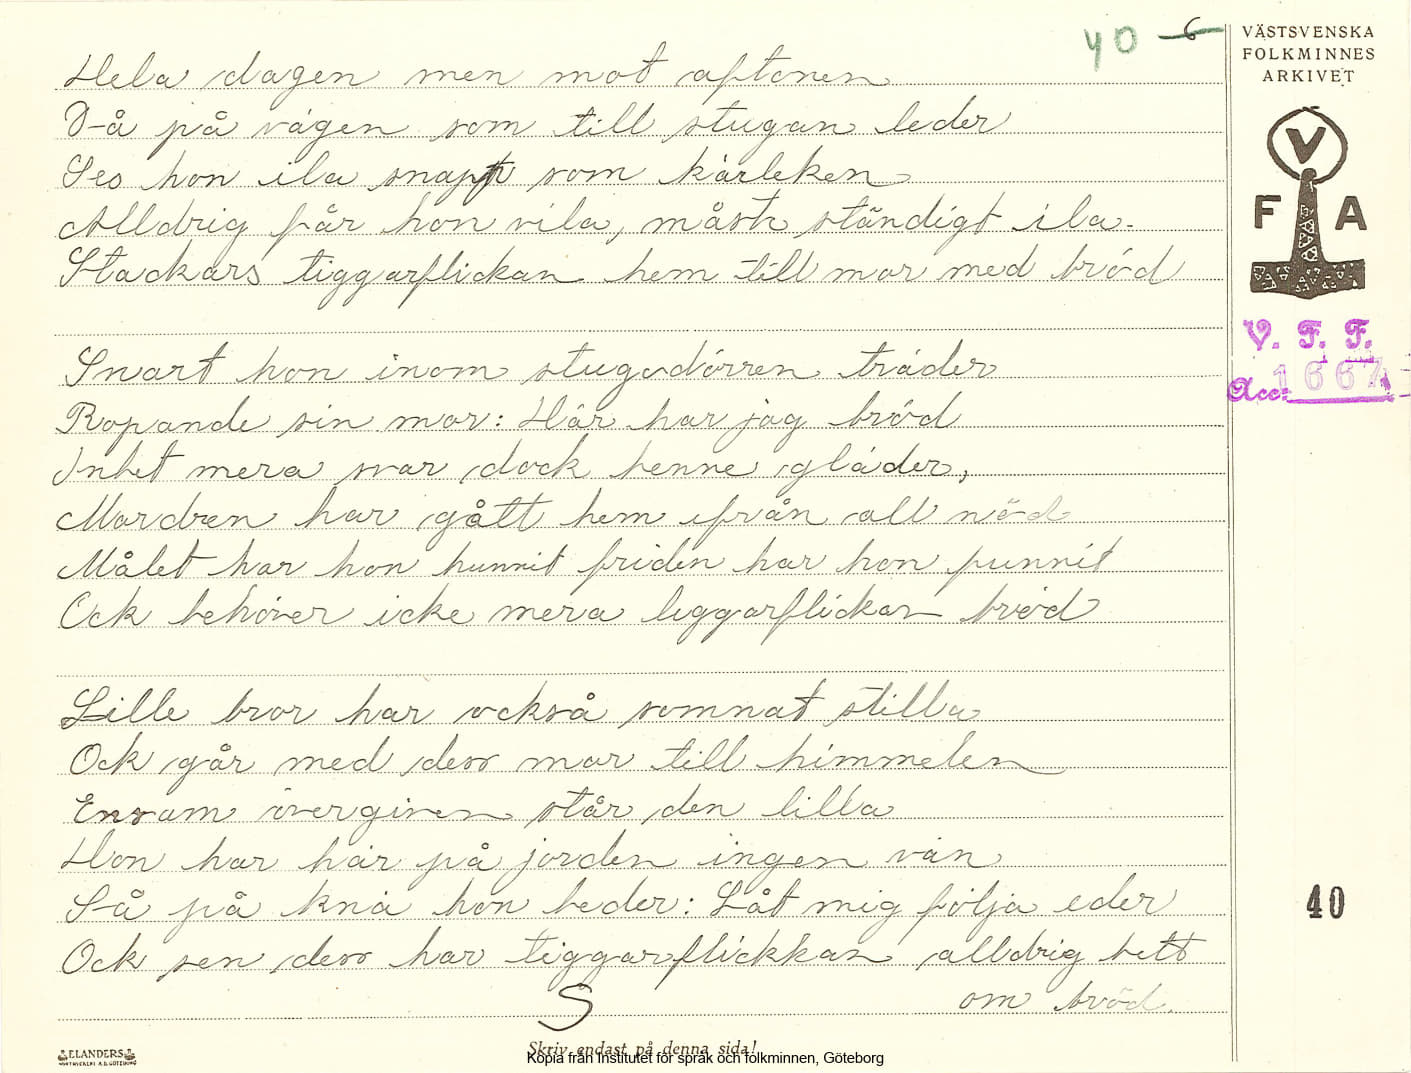 40 6
VÄSTSVENSKA
FOLKMINNES
ARKIVET
V
F A
V. F. F.
Acc: 1667
Hela dagen men mot aftonen
Då på vägen som till stugan leder
Ses hon ila snapt som kärleken
Alldrig får hon vila, måste ständigt ila.
Stackars tiggarflickan hem till mor med bröd
Snart hon inom stugudörren träder
Ropande sin mor: Här har jag bröd
Intet mera svar dock henne gläder,
Mordren har gått hem ifrån all nöd
Målet har hon hunnit friden har hon funnit
Ock behöver icke mera tiggarflickan bröd
Lille bror har också somnat stilla
Ock går med dess mor till himmelen
Ensam övergiven står den lilla
Hon har här på jorden ingen vän
Så på knä hon beder: Låt mig följa eder
Ock sen dess har tiggarflickkan alldrig bett
om bröd.
S
40
ELANDERS
Skriv endast på denna sida!
Kopia från Institutet för språk och folkminnen, Göteborg